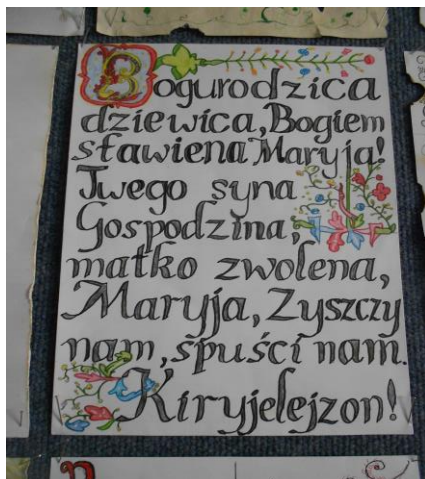 Bogurodzica
dziewica, Bogiem
sławiena Maryja!
Twego syna
Gospodzina,
matko zwolena,
Maryja, Zyszczy
nam, spuści nam.
Kiryjelejzon!